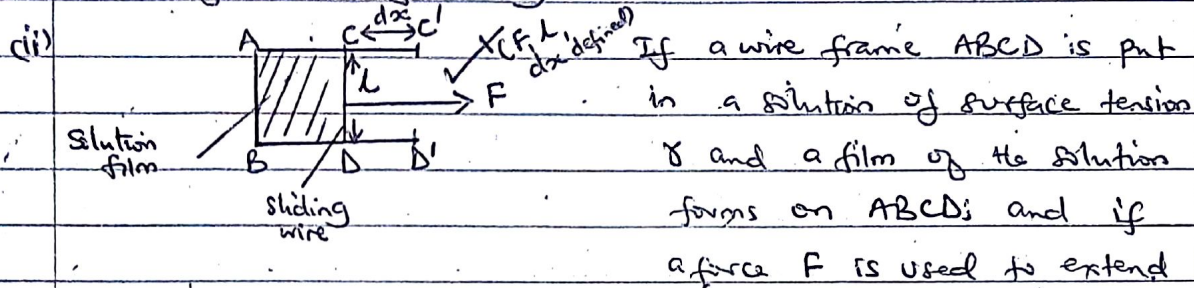 (ii)
A
C
dx
C'
(F, l,
dx defined)
l
F
Solution
film
B
D
D'
Sliding
wire
If a wire frame ABCD is put
in a solution of surface tension
γ and a film of the solution
forms on ABCD; and if
a force F is used to extend